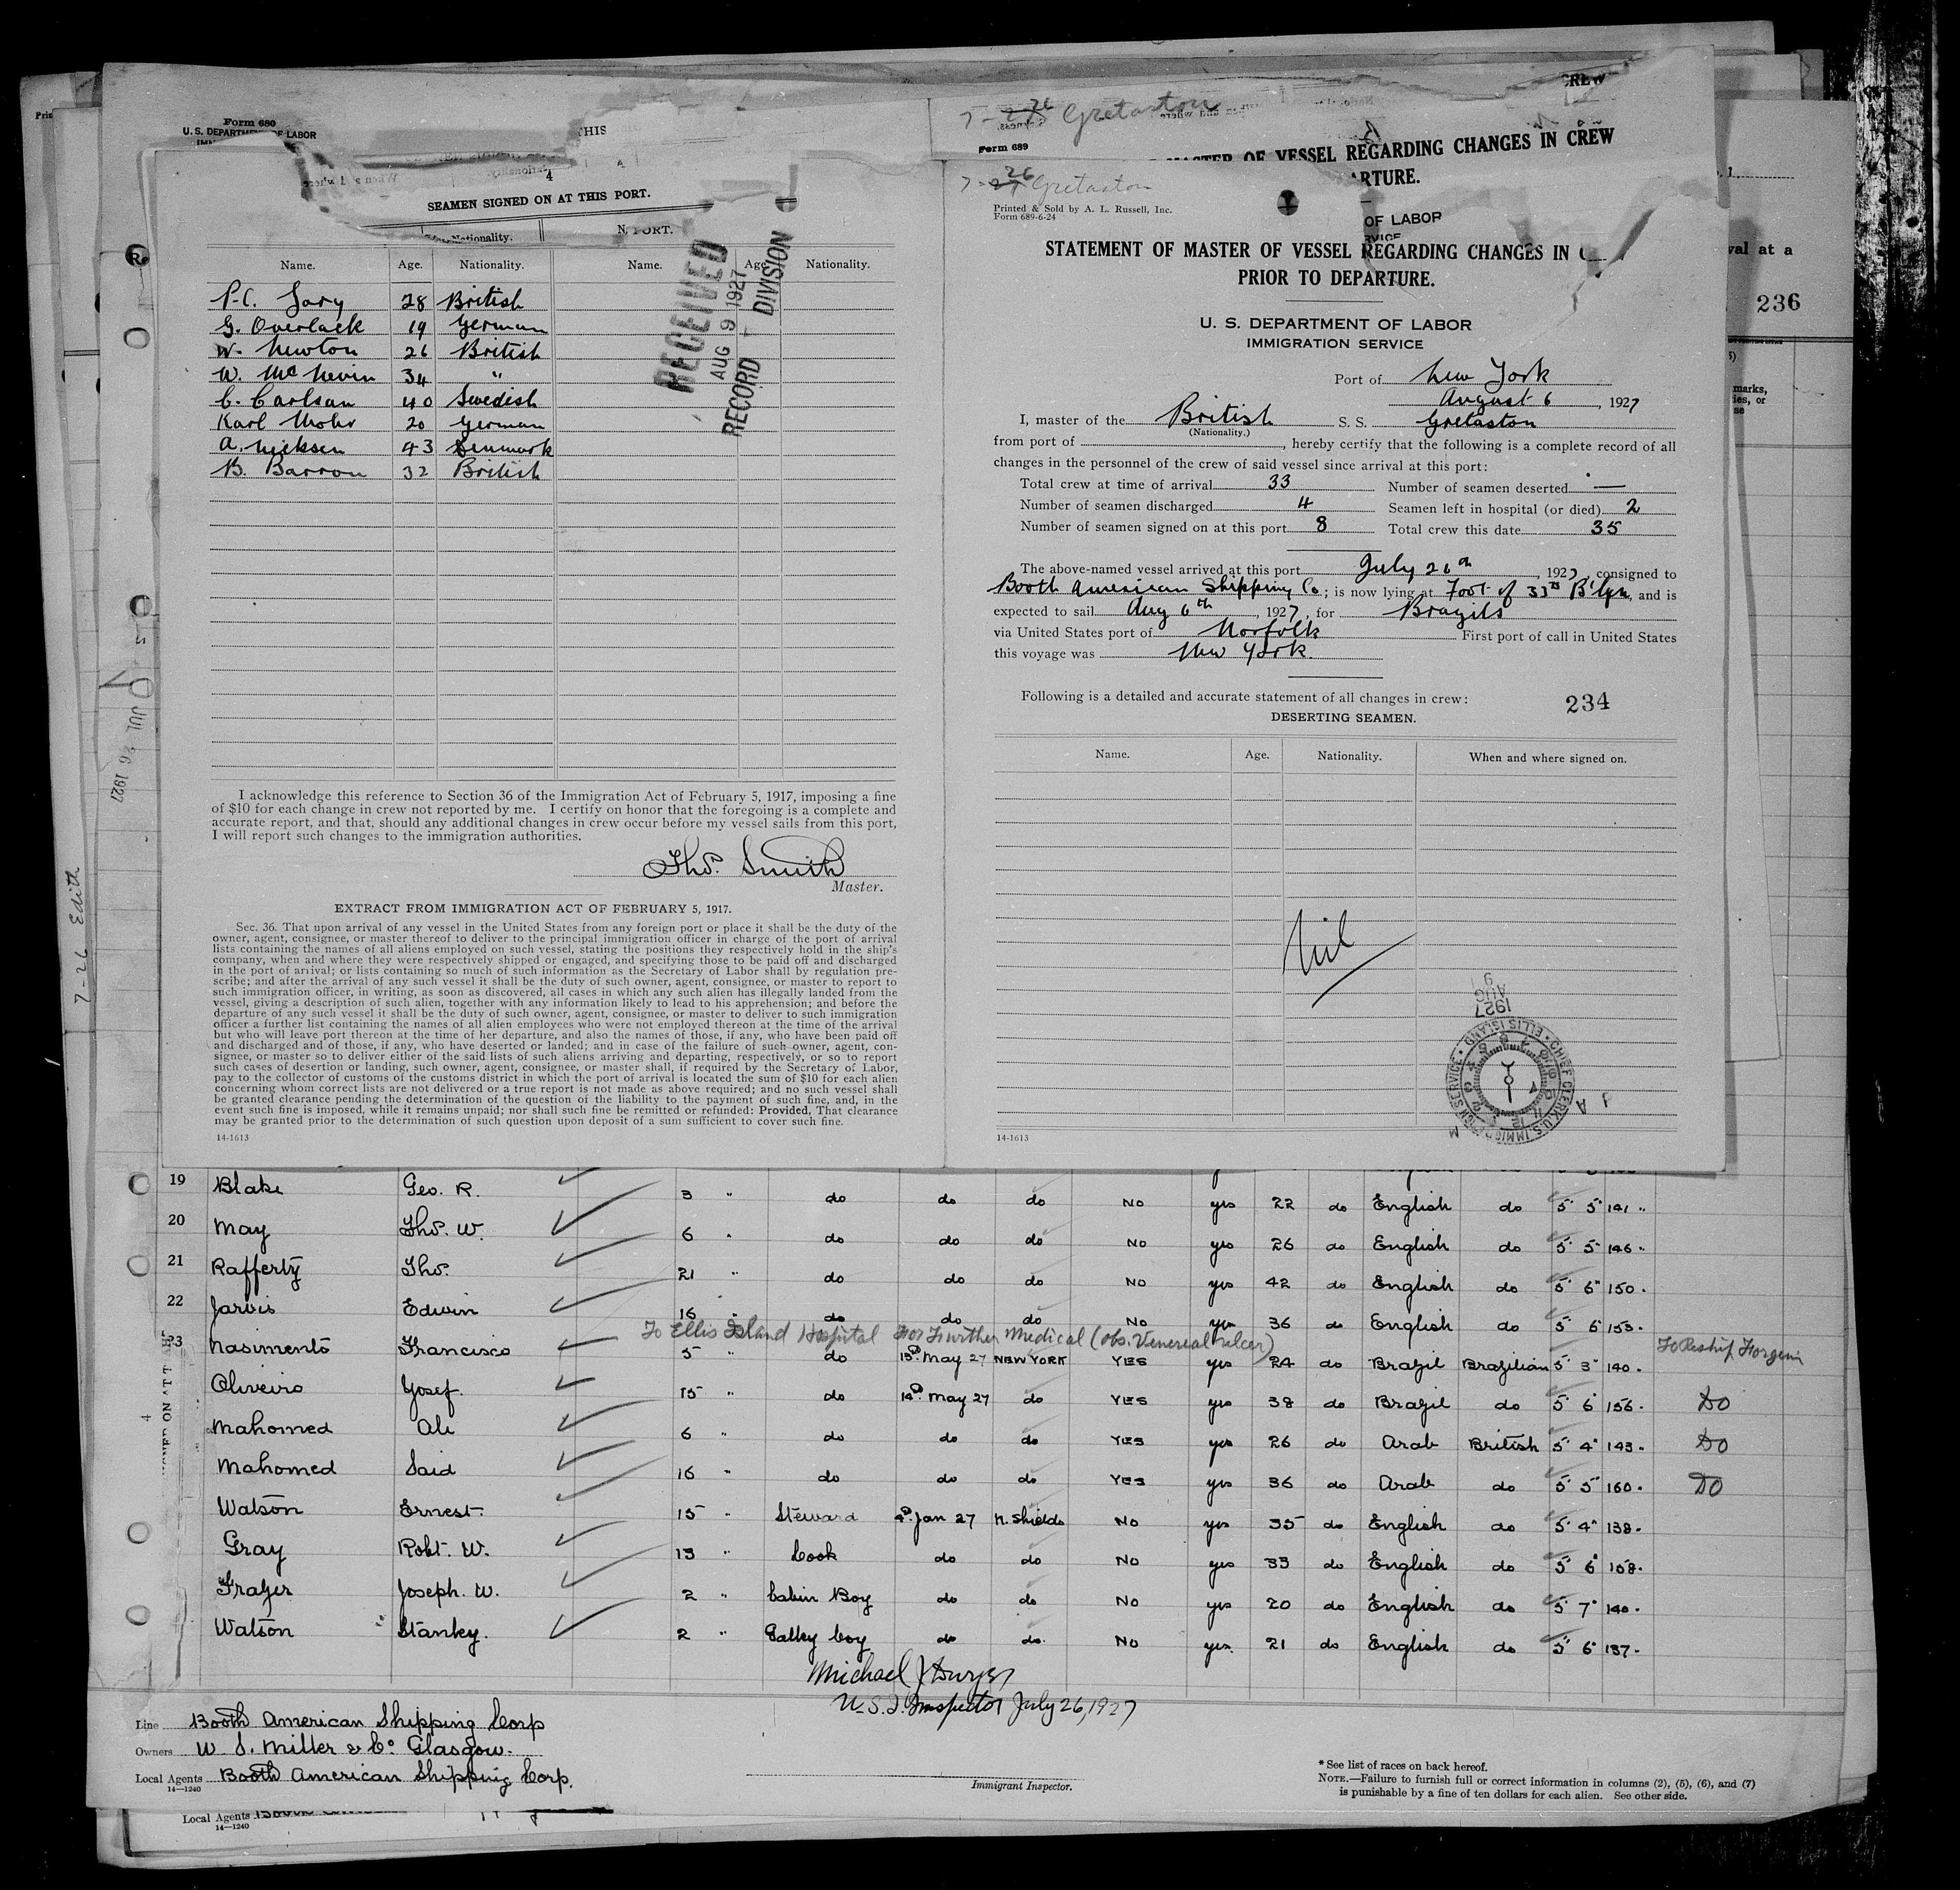 Form 680
U. S. DEPARTMENT OF LABOR
THIS
4
SEAMEN SIGNED ON AT THIS PORT.
Nationality.
Name. Age. Nationality. Name. Age. Nationality.
28 British
G. Overlack 19 German
W. Newton 26 British
W. McNevin 34 "
C. Carlsan 40 Swedish
Karl Mohr 20 German
43 Denmark
B. Barron 32 British
RECEIVED
AUG 9 1927
RECORD DIVISION
I acknowledge this reference to Section 36 of the Immigration Act of February 5, 1917, imposing a fine
of $10 for each change in crew not reported by me. I certify on honor that the foregoing is a complete and
accurate report, and that, should any additional changes in crew occur before my vessel sails from this port,
I will report such changes to the immigration authorities.
Thos. Smith
Master.
EXTRACT FROM IMMIGRATION ACT OF FEBRUARY 5, 1917.
Sec. 36. That upon arrival of any vessel in the United States from any foreign port or place it shall be the duty of the
owner, agent, consignee, or master thereof to deliver to the principal immigration officer in charge of the port of arrival
lists containing the names of all aliens employed on such vessel, stating the positions they respectively hold in the ship's
company, when and where they were respectively shipped or engaged, and specifying those to be paid off and discharged
in the port of arrival; or lists containing so much of such information as the Secretary of Labor shall by regulation pre-
scribe; and after the arrival of any such vessel it shall be the duty of such owner, agent, consignee, or master to report to
such immigration officer, in writing, as soon as discovered, all cases in which any such alien has illegally landed from the
vessel, giving a description of such alien, together with any information likely to lead to his apprehension; and before the
departure of any such vessel it shall be the duty of such owner, agent, consignee, or master to deliver to such immigration
officer a further list containing the names of all alien employees who were not employed thereon at the time of the arrival
but who will leave port thereon at the time of her departure, and also the names of those, if any, who have been paid off
and discharged and of those, if any, who have deserted or landed; and in case of the failure of such owner, agent, con-
signee, or master so to deliver either of the said lists of such aliens arriving and departing, respectively, or so to report
such cases of desertion or landing, such owner, agent, consignee, or master shall, if required by the Secretary of Labor,
pay to the collector of customs of the customs district in which the port of arrival is located the sum of $10 for each alien
concerning whom correct lists are not delivered or a true report is not made as above required; and no such vessel shall
be granted clearance pending the determination of the question of the liability to the payment of such fine, and, in the
event such fine is imposed, while it remains unpaid; nor shall such fine be remitted or refunded: Provided, That clearance
may be granted prior to the determination of such question upon deposit of a sum sufficient to cover such fine.
14-1613
CREW
7-26 Gretaston
Form 689
MASTER OF VESSEL REGARDING CHANGES IN CREW
7-26 Gretaston
Printed & Sold by A. L. Russell, Inc.
Form 689-6-24
OF LABOR
STATEMENT OF MASTER OF VESSEL REGARDING CHANGES IN
PRIOR TO DEPARTURE.
U. S. DEPARTMENT OF LABOR
IMMIGRATION SERVICE
Port of New York
August 6, 1927
I, master of the British S. S. Gretaston
(Nationality.)
from port of , hereby certify that the following is a complete record of all
changes in the personnel of the crew of said vessel since arrival at this port:
Total crew at time of arrival 33 Number of seamen deserted —
Number of seamen discharged 4 Seamen left in hospital (or died) 2
Number of seamen signed on at this port 8 Total crew this date 35
The above-named vessel arrived at this port July 26th, 1927, consigned to
Booth American Shipping Co.; is now lying at Foot of 33rd B'lyn, and is
expected to sail Aug 6th, 1927, for Brazils
via United States port of Norfolk First port of call in United States
this voyage was New York.
Following is a detailed and accurate statement of all changes in crew: 234
DESERTING SEAMEN.
Name. Age. Nationality. When and where signed on.
Nil
AUG 9 1927
CHIEF CLERK, U.S. IMMIGRATION SERVICE • ELLIS ISLAND
14-1613
val at a
236
JUL 26 1927
7-26 Edith
19 Blake Geo. R. 3 " do do do NO yes 22 do English do 5' 5" 141 "
20 May Tho. W. 6 " do do do NO yes 26 do English do 5 5" 146 "
21 Rafferty Tho. 21 " do do do NO yes 42 do English do 5 6" 150 "
22 Jarvis Edwin 16 " do do do NO yes 36 do English do 5 6 153 "
To Ellis Island Hospital For Further Medical (obs. Venereal ulcer)
23 Nasimento Francisco 5 " do 13th May 27 NEW YORK YES yes 24 do Brazil Brazilian 5' 3" 140 " To Reship Foreign
Oliveiro Yosef. 15 " do 14th May 27 do YES yes 38 do Brazil do 5 6 156 " DO
Mahomed Ali 6 " do do do YES yes 26 do Arab British 5' 4" 143 " DO
Mahomed Said 16 " do do do YES yes 36 do Arab do 5' 5" 160 " DO
Watson Ernest. 15 " Steward 4th Jan 27 N. Shields No yes 35 do English do 5' 4" 138 "
Gray Robt. W. 13 " Cook do do No yes 33 do English do 5' 6" 158 "
Frazer Joseph. W. 2 " Cabin Boy do do No yes 20 do English do 5' 7" 140 "
Watson Stanley. 2 " Galley boy do do. No yes. 21 do English do 5' 6" 137 "
Michael J Dwyer
U.S.I. Inspector July 26, 1927
Line Booth American Shipping Corp
Owners W. S. Miller & Co. Glasgow.
Local Agents Booth American Shipping Corp.
14—1240
Immigrant Inspector.
* See list of races on back hereof.
NOTE.—Failure to furnish full or correct information in columns (2), (5), (6), and (7)
is punishable by a fine of ten dollars for each alien. See other side.
Local Agents
14—1240